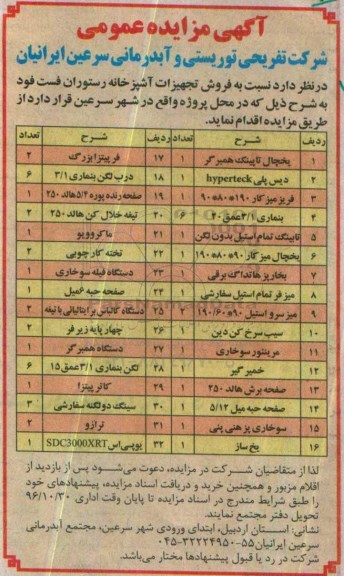 آگهی مزایده عمومی
شرکت تفریحی توریستی و آبدرمانی سرعین ایرانیان
در نظر دارد نسبت به فروش تجهیزات آشپزخانه رستوران فست فود
به شرح ذیل که در محل پروژه واقع در شهر سرعین قرار دارد از
طریق مزایده اقدام نماید.
ردیف شرح تعداد ردیف شرح تعداد
۱ یخچال تاپینگ همبرگر ۱ ۱۷ فر پیتزا بزرگ ۲
۲ دیس پلی hyperteck ۱ ۱۸ درب لگن بنماری ۳/۱ ۶
۳ فریزر میز کار ۱۹۰*۸۰*۹۰ ۱ ۱۹ صفحه رنده پوره ۵/۴ هالد ۲۵۰ ۱
۴ بنماری ۳/۱ عمق ۲۰ ۶ ۲۰ تیغه خلال کن هالد ۲۵۰ ۲
۵ تاپینگ تمام استیل بدون لگن ۱ ۲۱ ماکروویو ۱
۶ یخچال میز کار ۹۰*۸۰*۱۹۰ ۱ ۲۲ تخته کار چوبی ۲
۷ بخارپز هاتداگ برقی ۱ ۲۳ دستگاه فیله سوخاری ۱
۸ میز فر تمام استیل سفارشی ۱ ۲۴ صفحه حبه ۶میل ۱
۹ میز سرو استیل ۹۰*۱۹۰/۶۰ ۱ ۲۵ دستگاه کالباس بر ایتالیائی با تیغه ۲
۱۰ سیب سرخ کن دین ۱ ۲۶ چهار پایه زیر فر ۲
۱۱ مرینتور سوخاری ۱ ۲۷ دستگاه همبرگر ۱
۱۲ خمیر گیر ۱ ۲۸ لگن بنماری ۳/۱ عمق ۱۵ ۶
۱۳ صفحه برش هالد ۲۵۰ ۱ ۲۹ کاتر پیتزا ۱
۱۴ صفحه حبه میل ۵/۱۲ ۱ ۳۰ سینک دو لگنه سفارشی ۳
۱۵ سوخاری پز هنی پنی ۱ ۳۱ ترازو ۲
۱۶ یخ ساز ۱ ۳۲ یو پی اس SDC3000XRT ۱
لذا از متقاضیان شرکت در مزایده، دعوت می‌شود پس از بازدید از
اقلام مزبور و همچنین خرید و دریافت اسناد مزایده، پیشنهادهای خود
را طبق شرایط مندرج در اسناد مزایده تا پایان وقت اداری ۹۶/۱۰/۳۰
تحویل دفتر مجتمع نمایند.
نشانی: استان اردبیل، ابتدای ورودی شهر سرعین، مجتمع آبدرمانی
سرعین ایرانیان ۵۵-۳۲۲۲۴۹۵۰-۰۴۵
شرکت در رد یا قبول پیشنهادها مختار می‌باشد.